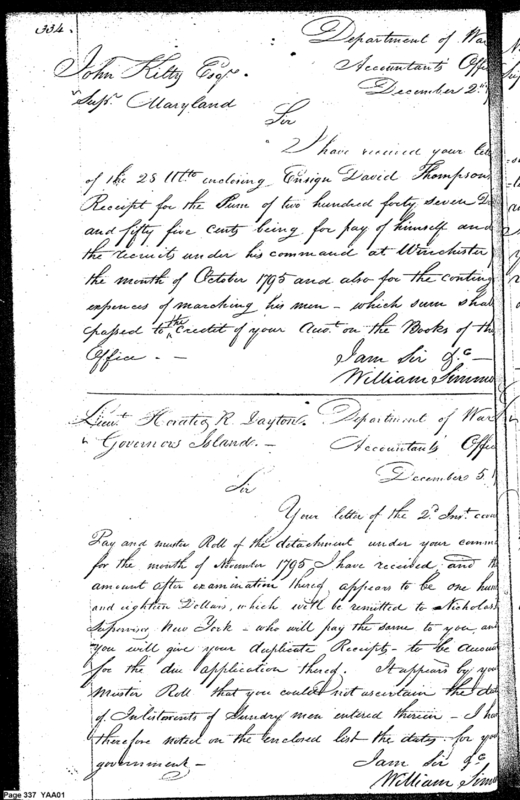 334.
Department of War
John Kilty Esqr.
Accountants Offi
Supr. Maryland
December 2
Sir
I have received your let
of the 28 Ulto. enclosing Ensign David Thompsons
Receipt for the Sum of two hundred forty seven Do
and fifty five cents being for pay of himself and
the recruits under his command at Winchester
the month of October 1795 and also for the conting
expences of marching his men - which sum shal
passed to the Credit of your Acct. on the Books of th
Office. -
I am Sir &c -
William Simmo
Lieut. Horatio R. Dayton.
Department of War
Governors Island. -
Accountants Offic
December 5.
Sir
Your letter of the 2d. Inst. cov
Pay and muster Roll of the detachment under your comm
for the month of November 1795 I have received and th
amount after examination thereof appears to be one hun
and eighteen Dollars, which will be remitted to Nicholas
Supervisor, New York - who will pay the same to you, and
you will give your duplicate Receipts - to be accoun
for the due application thereof. It appears by you
Muster Roll that you could not ascertain the dat
of Inlistments of Sundry men entered therein - I ha
therefore noted on the enclosed list the dates for yo
government -
I am Sir &c
William Simm
Page 337 YAA01